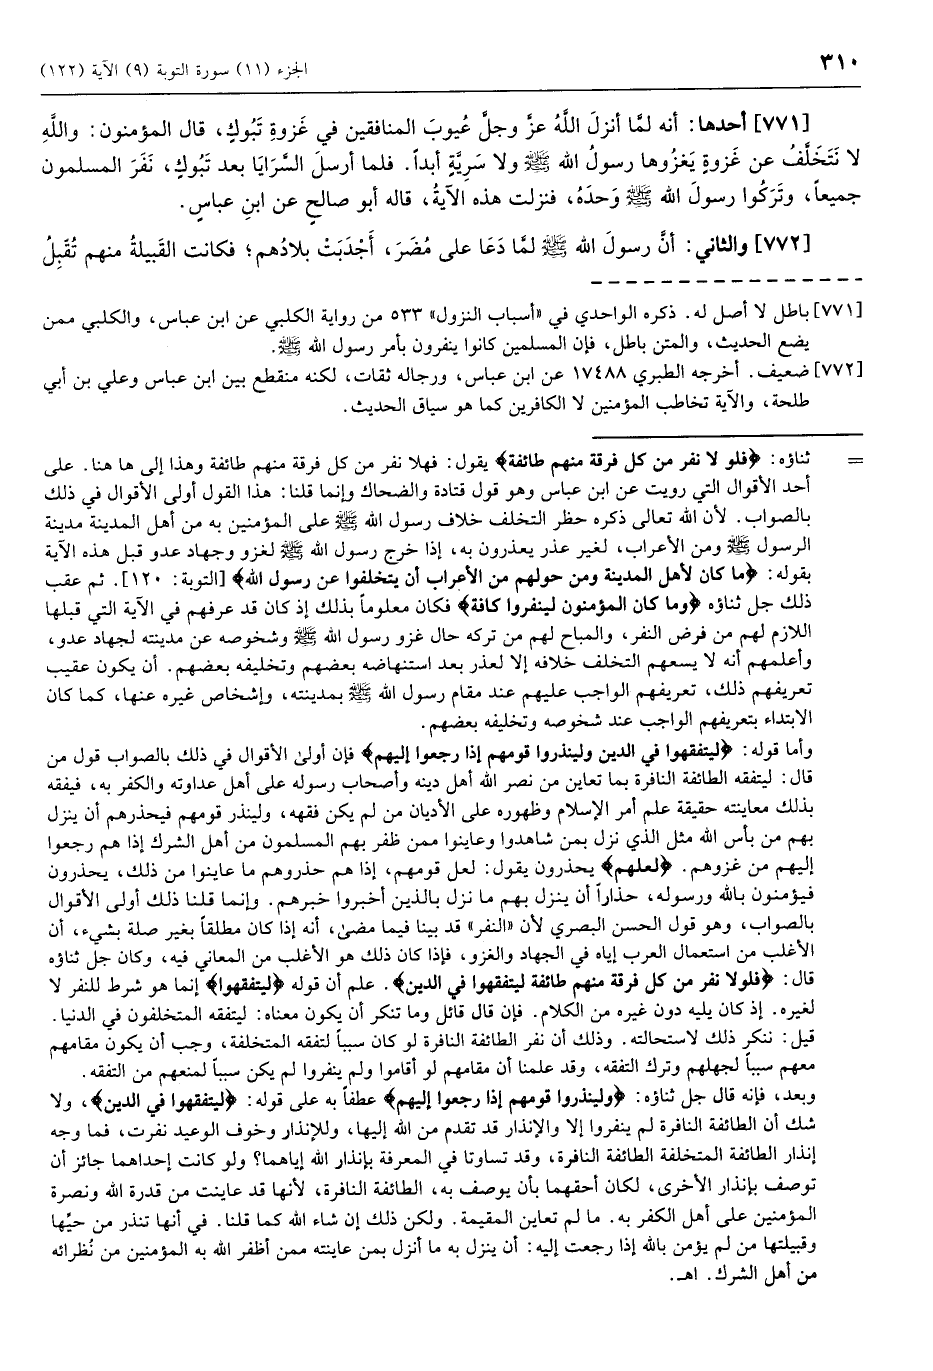 ٣١٠
الجزء (١١) سورة التوبة (٩) الآية (١٢٢)
[٧٧١] أحدها: أنه لمَّا أنزلَ اللَّهُ عزَّ وجلَّ عُيوبَ المنافقين في غَزوةِ تَبُوكٍ، قال المؤمنون: واللَّهِ
لا نَتَخَلَّفُ عن غَزوةٍ يَغزُوها رسولُ الله ﷺ ولا سَرِيَّةٍ أبداً. فلما أرسلَ السَّرَايَا بعد تَبُوكٍ، نَفَرَ المسلمون
جميعاً، وتَرَكُوا رسولَ الله ﷺ وَحدَهُ، فنزلت هذه الآيةُ، قاله أبو صالحٍ عن ابنِ عباسٍ.
[٧٧٢] والثاني: أنَّ رسولَ الله ﷺ لمَّا دَعَا على مُضَرَ، أَجْدَبَتْ بلادُهم؛ فكانت القَبيلةُ منهم تُقبِلُ
[٧٧١] باطل لا أصل له. ذكره الواحدي في «أسباب النزول» ٥٣٣ من رواية الكلبي عن ابن عباس، والكلبي ممن
يضع الحديث، والمتن باطل، فإن المسلمين كانوا ينفرون بأمر رسول الله ﷺ.
[٧٧٢] ضعيف. أخرجه الطبري ١٧٤٨٨ عن ابن عباس، ورجاله ثقات، لكنه منقطع بين ابن عباس وعلي بن أبي
طلحة، والآية تخاطب المؤمنين لا الكافرين كما هو سياق الحديث.
= ثناؤه: ﴿فلو لا نفر من كل فرقة منهم طائفة﴾ يقول: فهلا نفر من كل فرقة منهم طائفة وهذا إلى ها هنا. على
أحد الأقوال التي رويت عن ابن عباس وهو قول قتادة والضحاك وإنما قلنا: هذا القول أولى الأقوال في ذلك
بالصواب. لأن الله تعالى ذكره حظر التخلف خلاف رسول الله ﷺ على المؤمنين به من أهل المدينة مدينة
الرسول ﷺ ومن الأعراب، لغير عذر يعذرون به، إذا خرج رسول الله ﷺ لغزو وجهاد عدو قبل هذه الآية
بقوله: ﴿ما كان لأهل المدينة ومن حولهم من الأعراب أن يتخلفوا عن رسول الله﴾ [التوبة: ١٢٠]. ثم عقب
ذلك جل ثناؤه ﴿وما كان المؤمنون لينفروا كافة﴾ فكان معلوماً بذلك إذ كان قد عرفهم في الآية التي قبلها
اللازم لهم من فرض النفر، والمباح لهم من تركه حال غزو رسول الله ﷺ وشخوصه عن مدينته لجهاد عدو،
وأعلمهم أنه لا يسعهم التخلف خلافه إلا لعذر بعد استنهاضه بعضهم وتخليفه بعضهم. أن يكون عقيب
تعريفهم ذلك، تعريفهم الواجب عليهم عند مقام رسول الله ﷺ بمدينته، وإشخاص غيره عنها، كما كان
الابتداء بتعريفهم الواجب عند شخوصه وتخليفه بعضهم.
وأما قوله: ﴿ليتفقهوا في الدين ولينذروا قومهم إذا رجعوا إليهم﴾ فإن أولىٰ الأقوال في ذلك بالصواب قول من
قال: ليتفقه الطائفة النافرة بما تعاين من نصر الله أهل دينه وأصحاب رسوله على أهل عداوته والكفر به، فيفقه
بذلك معاينته حقيقة علم أمر الإسلام وظهوره على الأديان من لم يكن فقهه، ولينذر قومهم فيحذرهم أن ينزل
بهم من بأس الله مثل الذي نزل بمن شاهدوا وعاينوا ممن ظفر بهم المسلمون من أهل الشرك إذا هم رجعوا
إليهم من غزوهم. ﴿لعلهم﴾ يحذرون يقول: لعل قومهم، إذا هم حذروهم ما عاينوا من ذلك، يحذرون
فيؤمنون بالله ورسوله، حذاراً أن ينزل بهم ما نزل بالذين أخبروا خبرهم. وإنما قلنا ذلك أولى الأقوال
بالصواب، وهو قول الحسن البصري لأن «النفر» قد بينا فيما مضىٰ، أنه إذا كان مطلقاً بغير صلة بشيء، أن
الأغلب من استعمال العرب إياه في الجهاد والغزو، فإذا كان ذلك هو الأغلب من المعاني فيه، وكان جل ثناؤه
قال: ﴿فلولا نفر من كل فرقة منهم طائفة ليتفقهوا في الدين﴾. علم أن قوله ﴿ليتفقهوا﴾ إنما هو شرط للنفر لا
لغيره. إذ كان يليه دون غيره من الكلام. فإن قال قائل وما تنكر أن يكون معناه: ليتفقه المتخلفون في الدنيا.
قيل: ننكر ذلك لاستحالته. وذلك أن نفر الطائفة النافرة لو كان سبباً لتفقه المتخلفة، وجب أن يكون مقامهم
معهم سبباً لجهلهم وترك التفقه، وقد علمنا أن مقامهم لو أقاموا ولم ينفروا لم يكن سبباً لمنعهم من التفقه.
وبعد، فإنه قال جل ثناؤه: ﴿ولينذروا قومهم إذا رجعوا إليهم﴾ عطفاً به على قوله: ﴿ليتفقهوا في الدين﴾، ولا
شك أن الطائفة النافرة لم ينفروا إلا والإنذار قد تقدم من الله إليها، وللإنذار وخوف الوعيد نفرت، فما وجه
إنذار الطائفة المتخلفة الطائفة النافرة، وقد تساوتا في المعرفة بإنذار الله إياهما؟ ولو كانت إحداهما جائز أن
توصف بإنذار الأخرى، لكان أحقهما بأن يوصف به، الطائفة النافرة، لأنها قد عاينت من قدرة الله ونصرة
المؤمنين على أهل الكفر به. ما لم تعاين المقيمة. ولكن ذلك إن شاء الله كما قلنا. في أنها تنذر من حيِّها
وقبيلتها من لم يؤمن بالله إذا رجعت إليه: أن ينزل به ما أنزل بمن عاينته ممن أظفر الله به المؤمنين من نُظرائه
من أهل الشرك. اهـ.